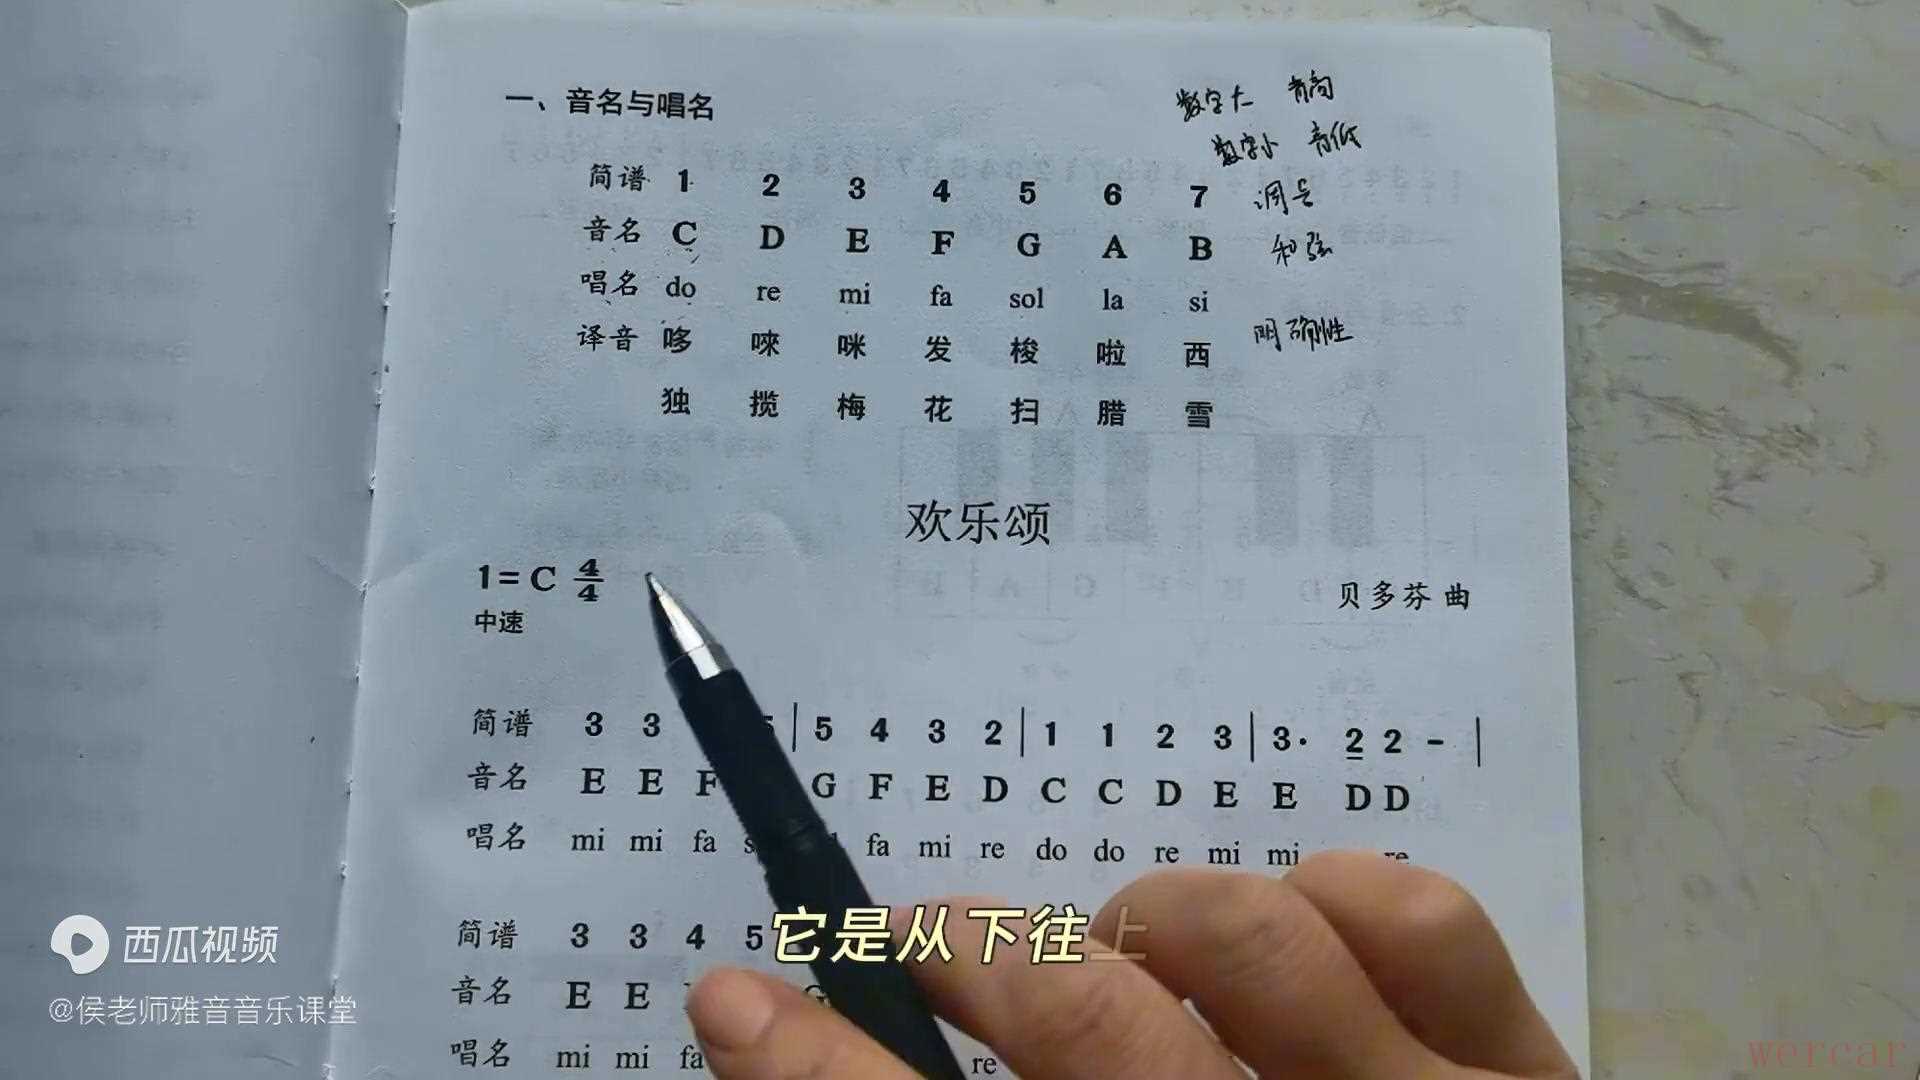 一、音名与唱名
数字大 音高
数字小 音低
简谱 1 2 3 4 5 6 7 调号
音名 C D E F G A B 和弦
唱名 do re mi fa sol la si
译音 哆 唻 咪 发 梭 啦 西 明确性
独 揽 梅 花 扫 腊 雪
欢乐颂
1=C 4/4
贝多芬 曲
中速
简谱 3 3 5 | 5 4 3 2 | 1 1 2 3 | 3· 2 2 - |
音名 E E F G F E D C C D E E D D
唱名 mi mi fa fa mi re do do re mi mi re
简谱 3 3 4 5
它是从下往上
音名 E E G
唱名 mi mi fa re
西瓜视频
@侯老师雅音音乐课堂
wercar